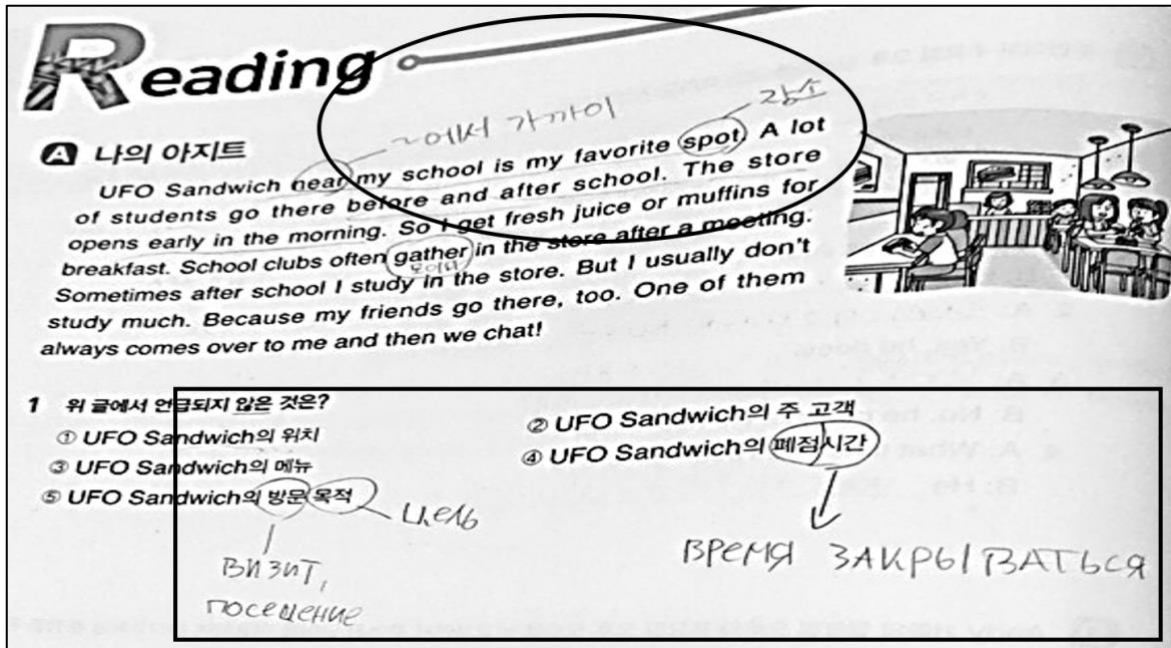 Reading
~에서 가까이
장소
A 나의 아지트
UFO Sandwich near my school is my favorite spot. A lot
of students go there before and after school. The store
opens early in the morning. So I get fresh juice or muffins for
breakfast. School clubs often gather in the store after a meeting.
모이다
Sometimes after school I study in the store. But I usually don't
study much. Because my friends go there, too. One of them
always comes over to me and then we chat!
1 위 글에서 언급되지 않은 것은?
① UFO Sandwich의 위치
② UFO Sandwich의 주 고객
③ UFO Sandwich의 메뉴
④ UFO Sandwich의 폐점시간
⑤ UFO Sandwich의 방문 목적
цель
визит,
посещение
ВРЕМЯ ЗАКРЫВАТЬСЯ